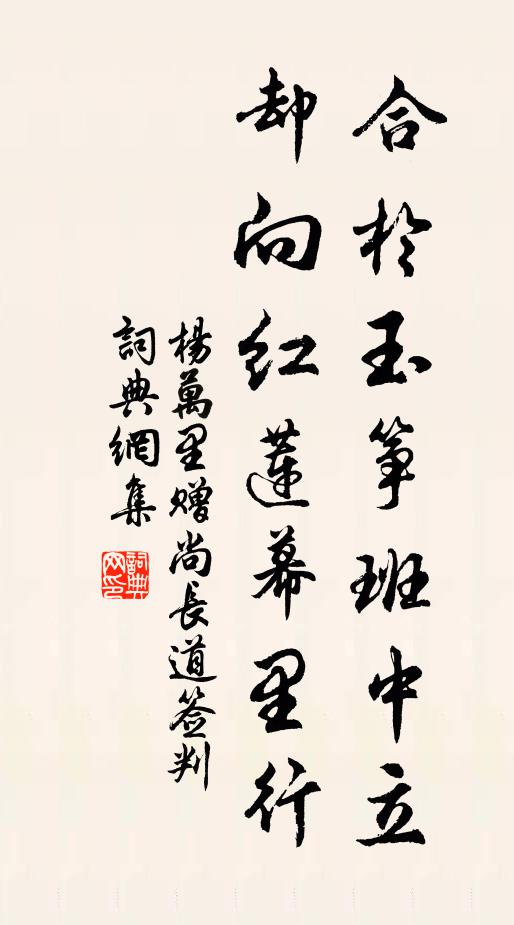 合於玉筝班中立
却向红蓮幕里行
楊萬里赠尚長道簽判
詞典網集
詞典网印